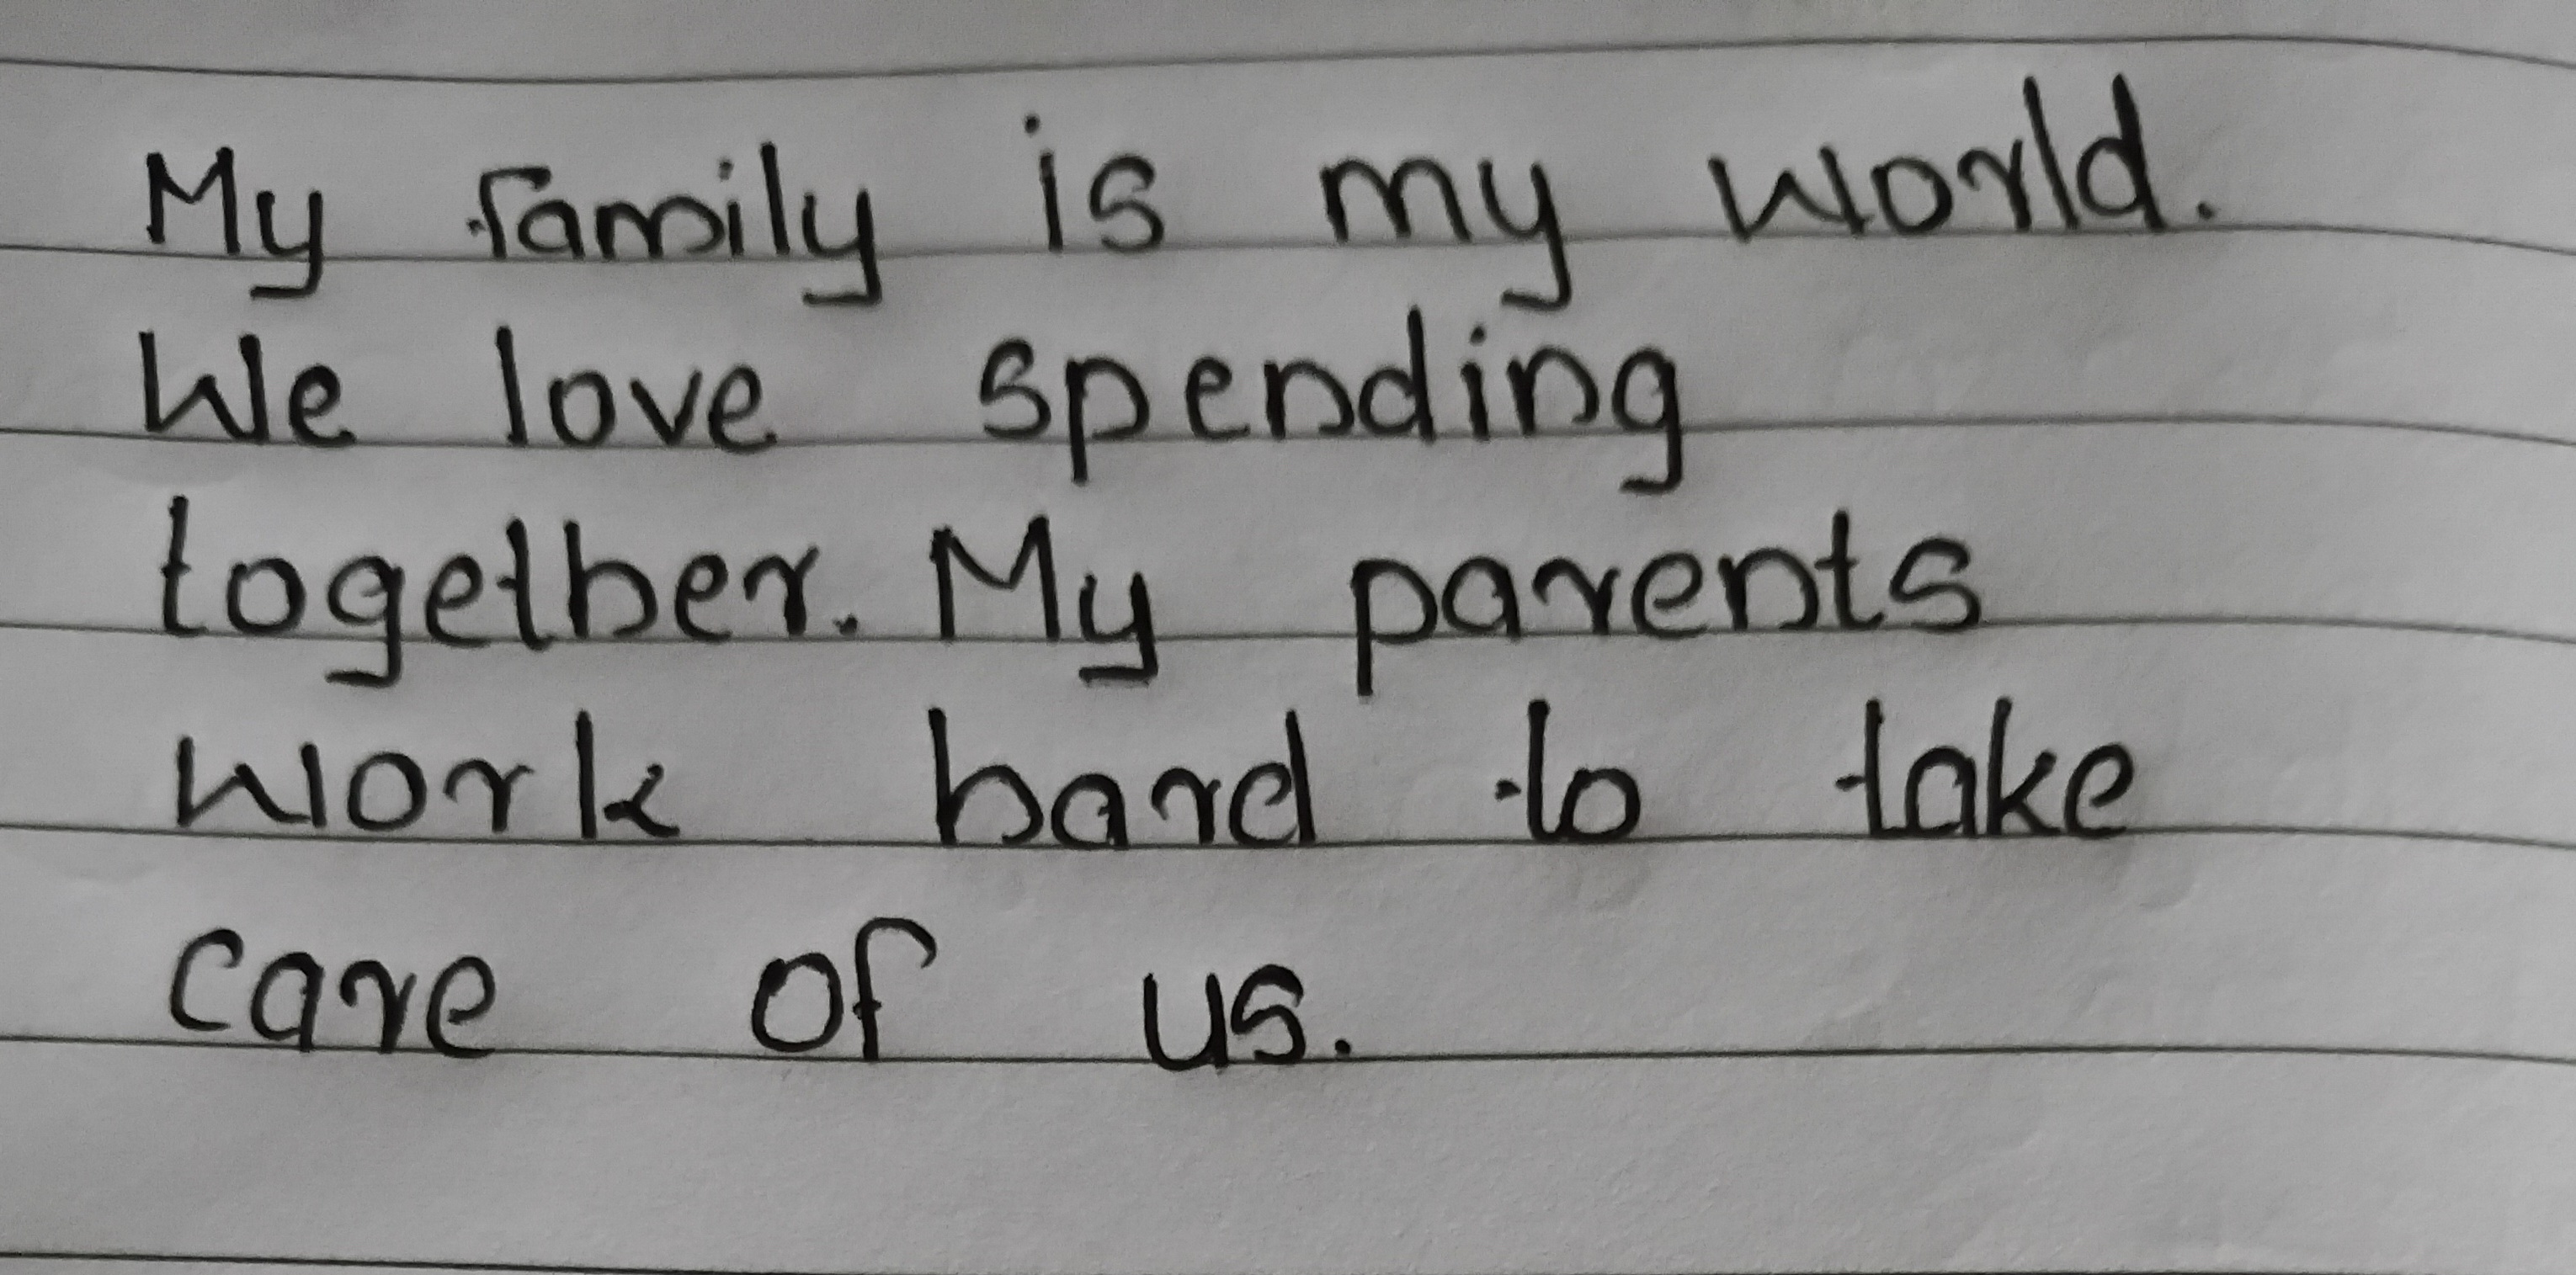 My family is my world.
We love spending
together. My parents
work hard to take
care of us.